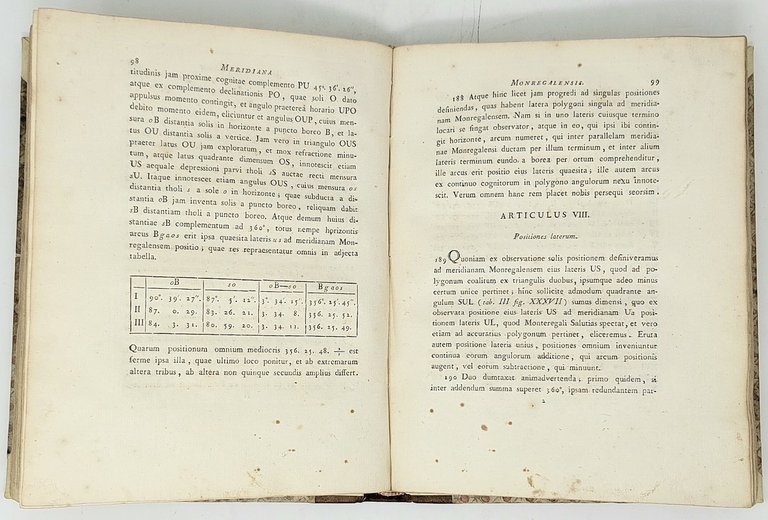 98
MERIDIANA
titudinis jam proxime cognitae complemento PU 45°. 36'. 26",
atque ex complemento declinationis PO, quae soli O dato
appulsus momento contingit, et angulo praetereà horario UPO
debito momento eidem, eliciuntur et angulus OUP, cuius men-
sura oB distantia solis in horizonte a puncto boreo B, et la-
tus OU distantia solis a vertice. Jam vero in triangulo OUS
praeter latus OU jam exploratum, et mox refractione minu-
tum, atque latus quadrante dimensum OS, innotescit etiam
US aequale depressioni parvi tholi sS auctae recti mensura
sU. Itaque innotescet etiam angulus OUS, cuius mensura os
distantia tholi s a sole o in horizonte; quae subducta a di-
stantia oB jam inventa solis a puncto boreo, reliquam dabit
sB distantiam tholi a puncto boreo. Atque demum huius di-
stantiae sB complementum ad 360°, torus nempe horizontis
arcus Bgaos erit ipsa quaesita lateris us ad meridianam Mon-
regalensem positio; quae res repraesentatur omnis in adjecta
tabella.
oB so oB—so Bgaos
I 90°. 39'. 27". 87°. 5'. 12". 3°. 34'. 15". 356°. 25'. 45".
II 87. 0. 29. 83. 26. 21. 3. 34. 8. 356. 25. 52.
III 84. 3. 31. 80. 59. 20. 3. 34. 11. 356. 25. 49.
Quarum positionum omnium mediocris 356. 25. 48. est
ferme ipsa illa, quae ultimo loco ponitur, et ab extremarum
altera tribus, ab altera non quinque secundis amplius differt.
MONREGALENSIS.
99
188 Atque hinc licet jam progredi ad singulas positiones
definiendas, quas habent latera polygoni singula ad meridia-
nam Monregalensem. Nam si in uno lateris cuiusque termino
locari se fingat observator, atque in eo, qui ipsi ibi contin-
git horizonte, arcum numeret, qui inter parallelam meridia-
nae Monregalensi ductam per illum terminum, et inter alium
lateris terminum eundo a borea per ortum comprehenditur,
ille arcus erit positio eius lateris quaesita; ille autem arcus
ex continuo cognitorum in polygono angulorum nexu innote-
scit. Verum omnem hanc rem placet nobis persequi seorsim.
ARTICULUS VIII.
Positiones laterum.
189 Quoniam ex observatione solis positionem definiveramus
ad meridianam Monregalensem eius lateris US, quod ad po-
lygonum coalitum ex triangulis duobus, ipsumque adeo minus
certum unice pertinet; hinc sollicite admodum quadrante an-
gulum SUL (tab. III fig. XXXVII) sumus dimensi, quo ex
observata positione eius lateris US ad meridianam Ua posi-
tionem lateris UL, quod Monteregali Salutias spectat, et vero
etiam ad accuratius polygonum pertinet, eliceremus. Eruta
autem positione lateris unius, positiones omnium inveniuntur
continua eorum angulorum additione, qui arcum positionis
augent, vel eorum subtractione, qui minuunt.
190 Duo dumtaxat animadvertenda; primo quidem, si
inter addendum summa superet 360°, ipsam redundantem par-
2